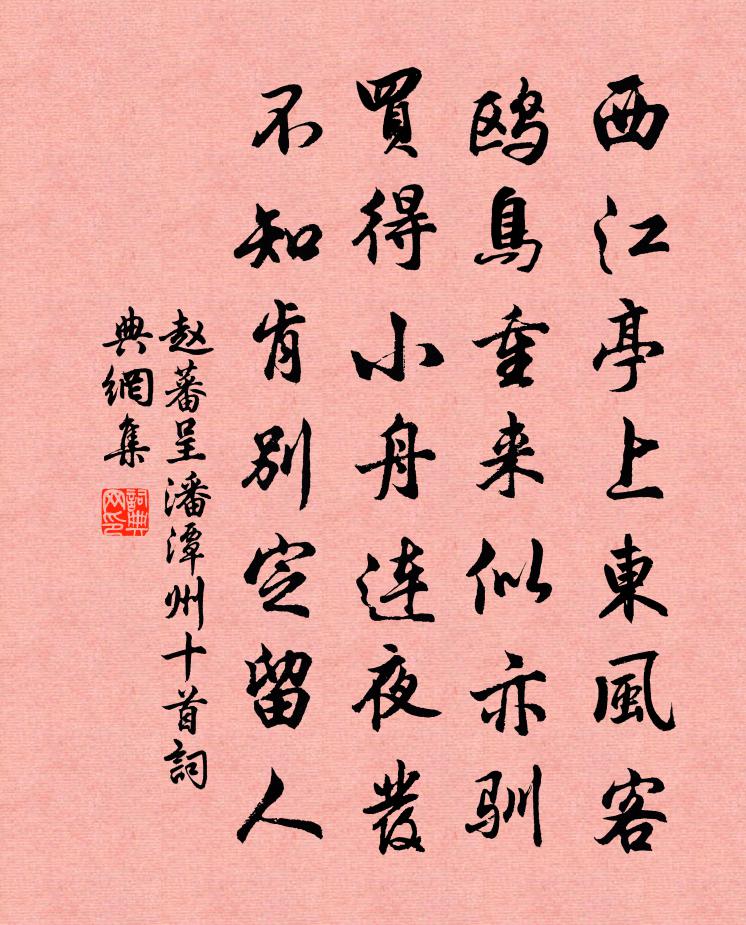 西江亭上東風客
鸥鳥重来似亦驯
買得小舟連夜發
不知肯別定留人
赵蕃呈潘潭州十首詞
典網集
詞典网印